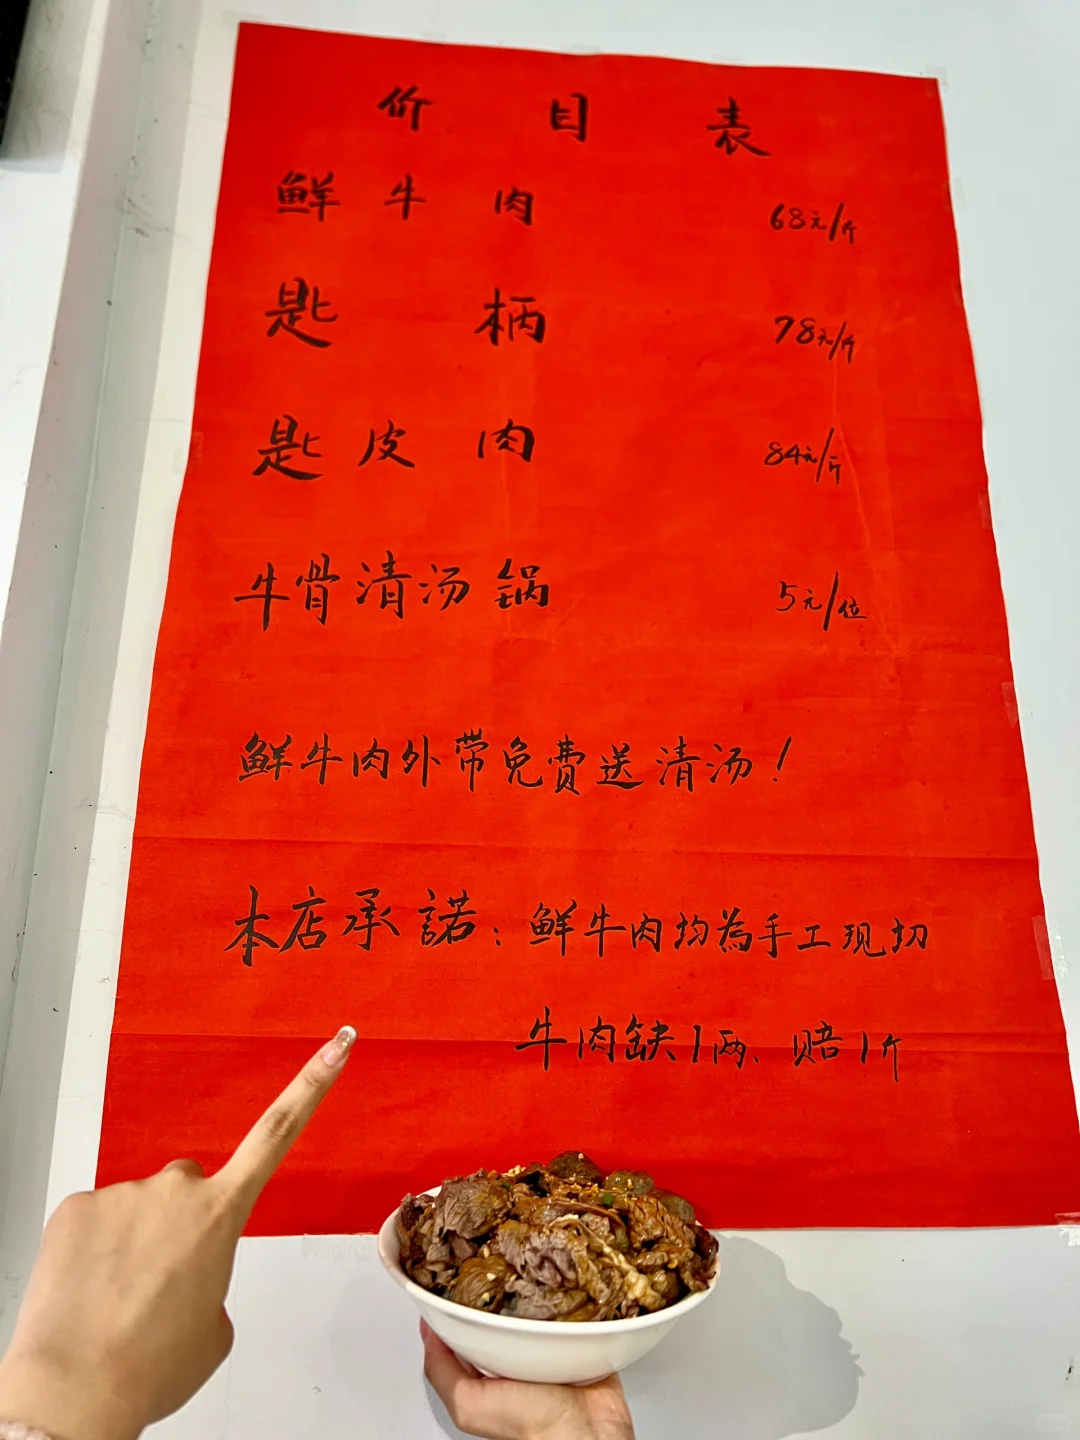 价目表
鲜牛肉 68元/斤
匙柄 78元/斤
匙皮肉 84元/斤
牛骨清汤锅 5元/位
鲜牛肉外带免费送清汤！
本店承諾：鲜牛肉均為手工现切
牛肉缺1两、赔1斤